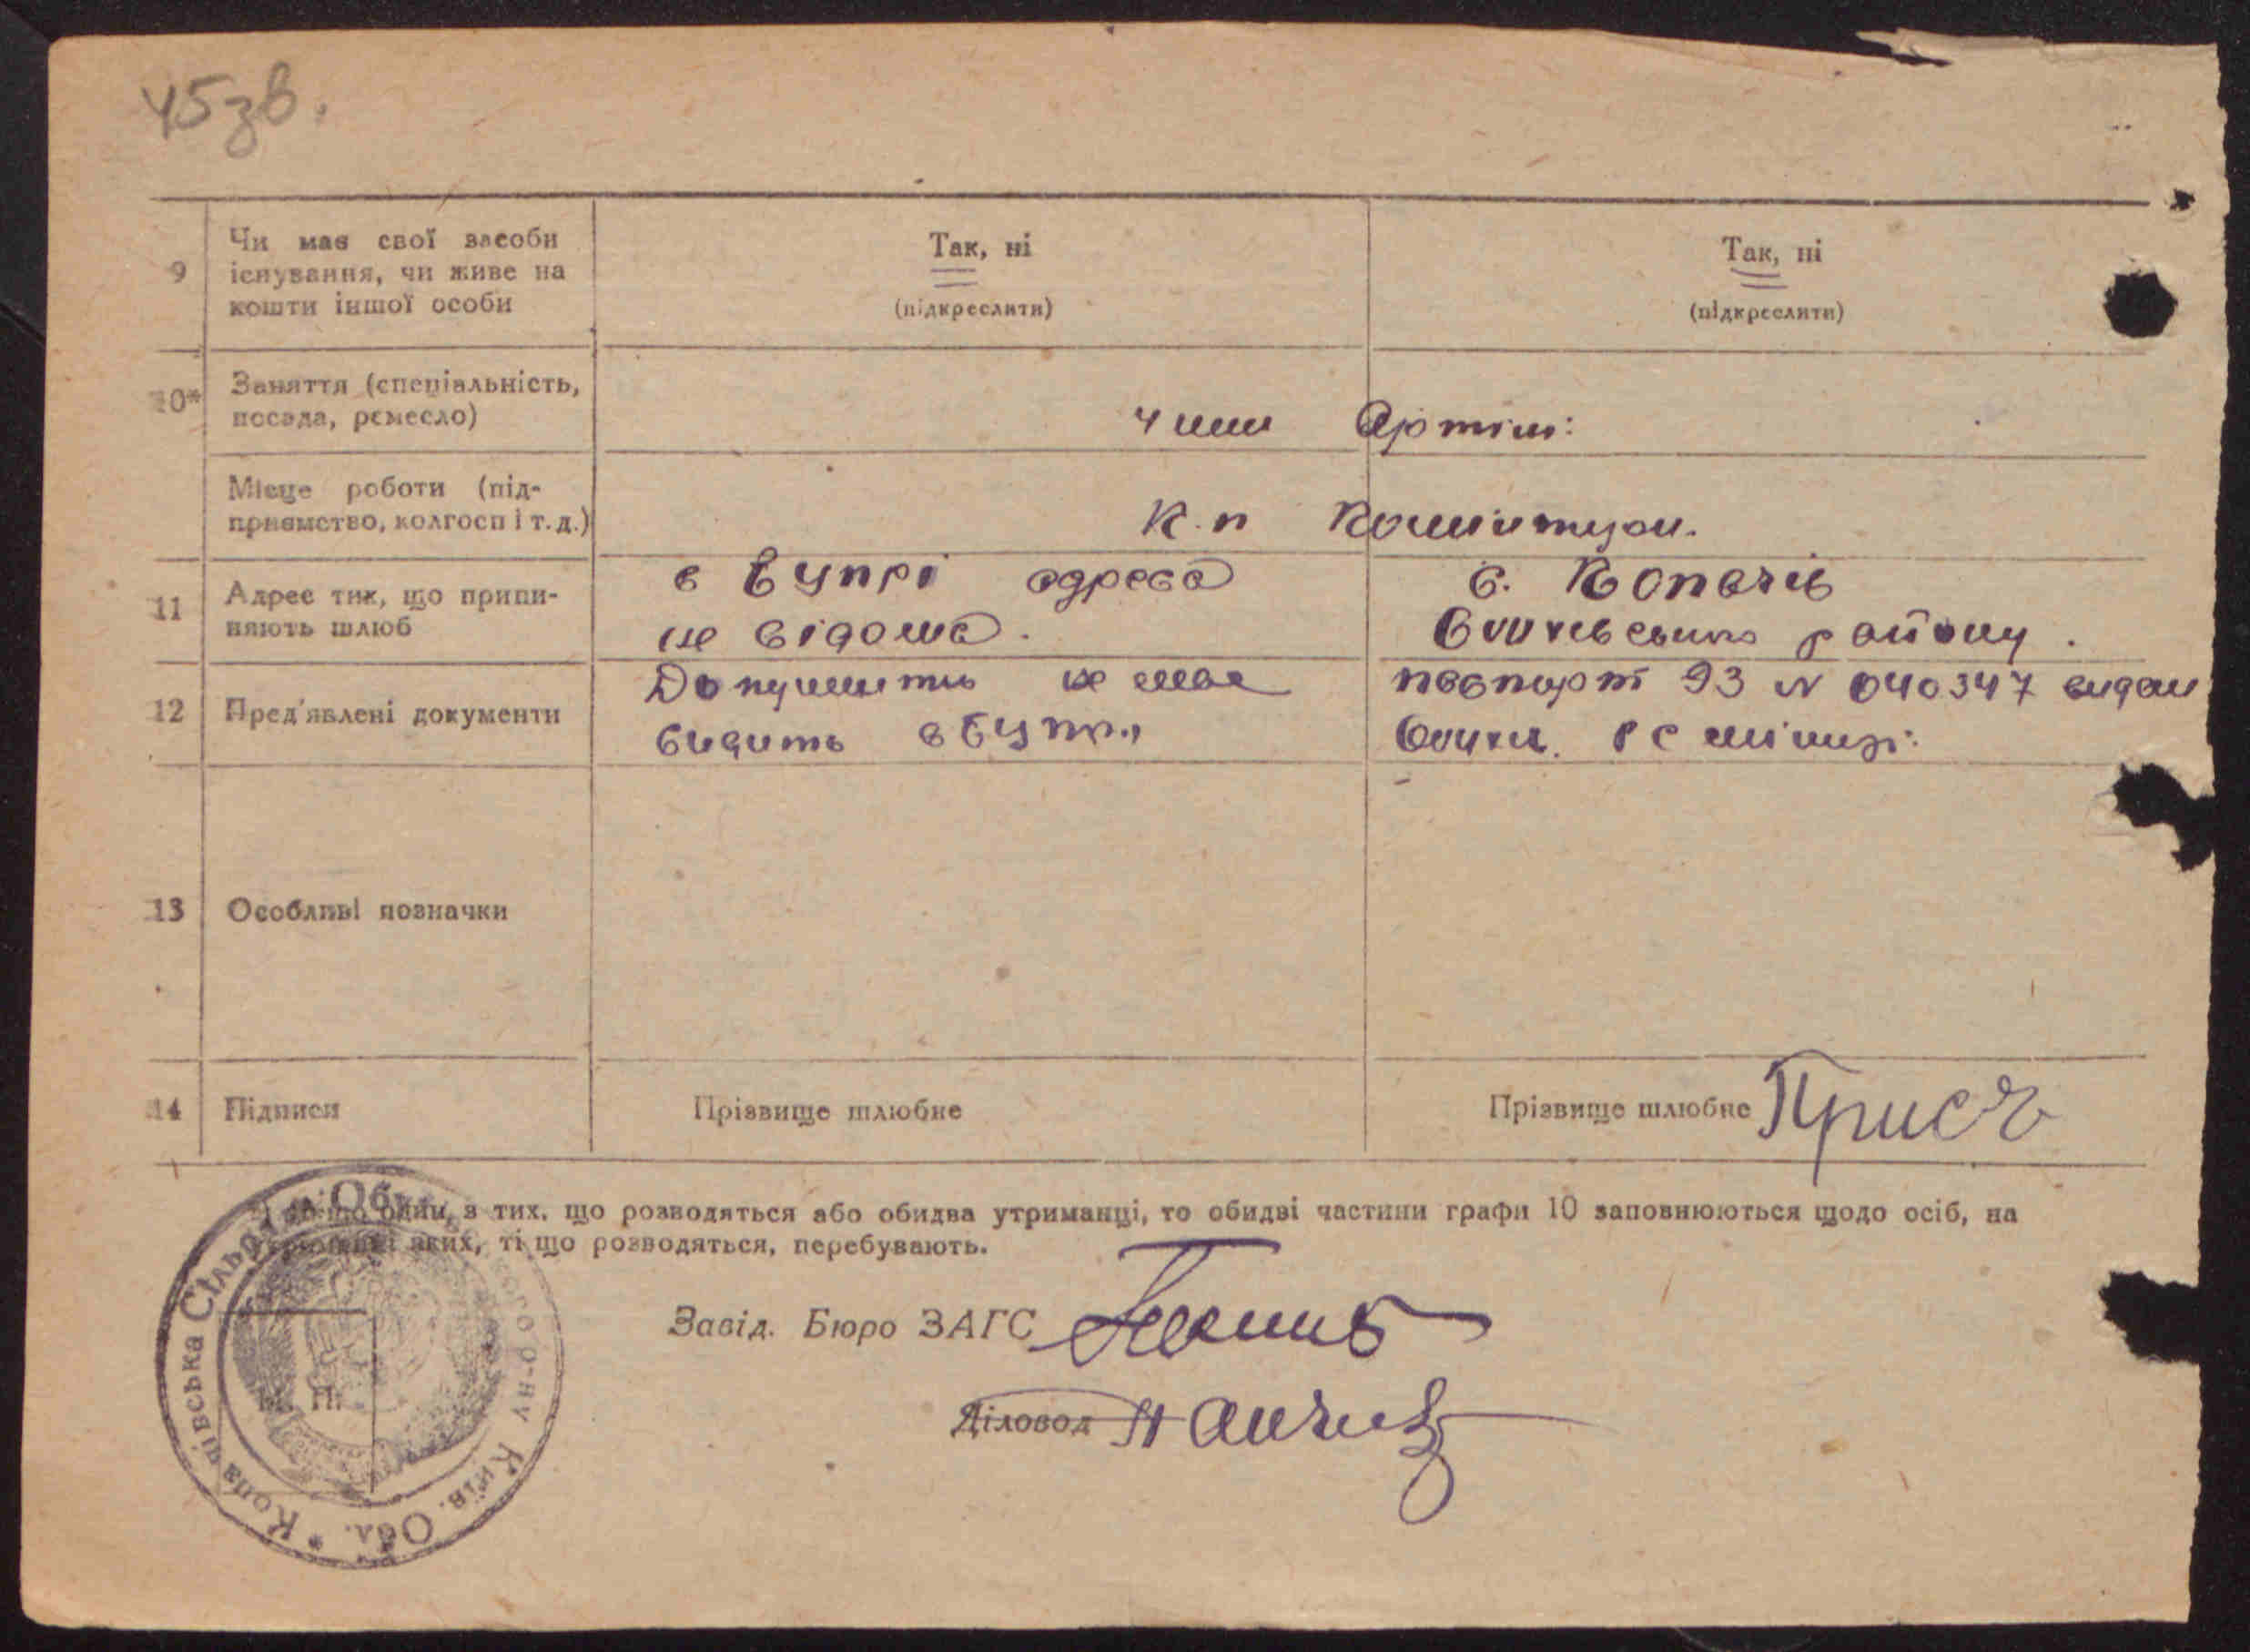 45зв.
9 Чи має свої засоби існування, чи живе на кошти іншої особи
Так, ні
(підкреслити)
Так, ні
(підкреслити)
10* Заняття (спеціальність, посада, ремесло)
член Артілі
Місце роботи (підприємство, колгосп і т. д.)
к.п
11 Адрес тих, що припиняють шлюб
в Бупрі адреса
не відома.
с. Копачів
району.
12 Пред'явлені документи
Документів не має
сидить в Бупрі
паспорт 93 № 040347 видан
РС міліції
13 Особливі позначки
14 Підписи
Прізвище шлюбне
Прізвище шлюбне Прися
один, з тих, що розводяться або обидва утриманці, то обидві частини графи 10 заповнюються щодо осіб, на
утриманні яких, ті що розводяться, перебувають.
Завід. Бюро ЗАГС
Діловод
М. П.
Копачівська Сільська
кого р-ну Київ. Обл.